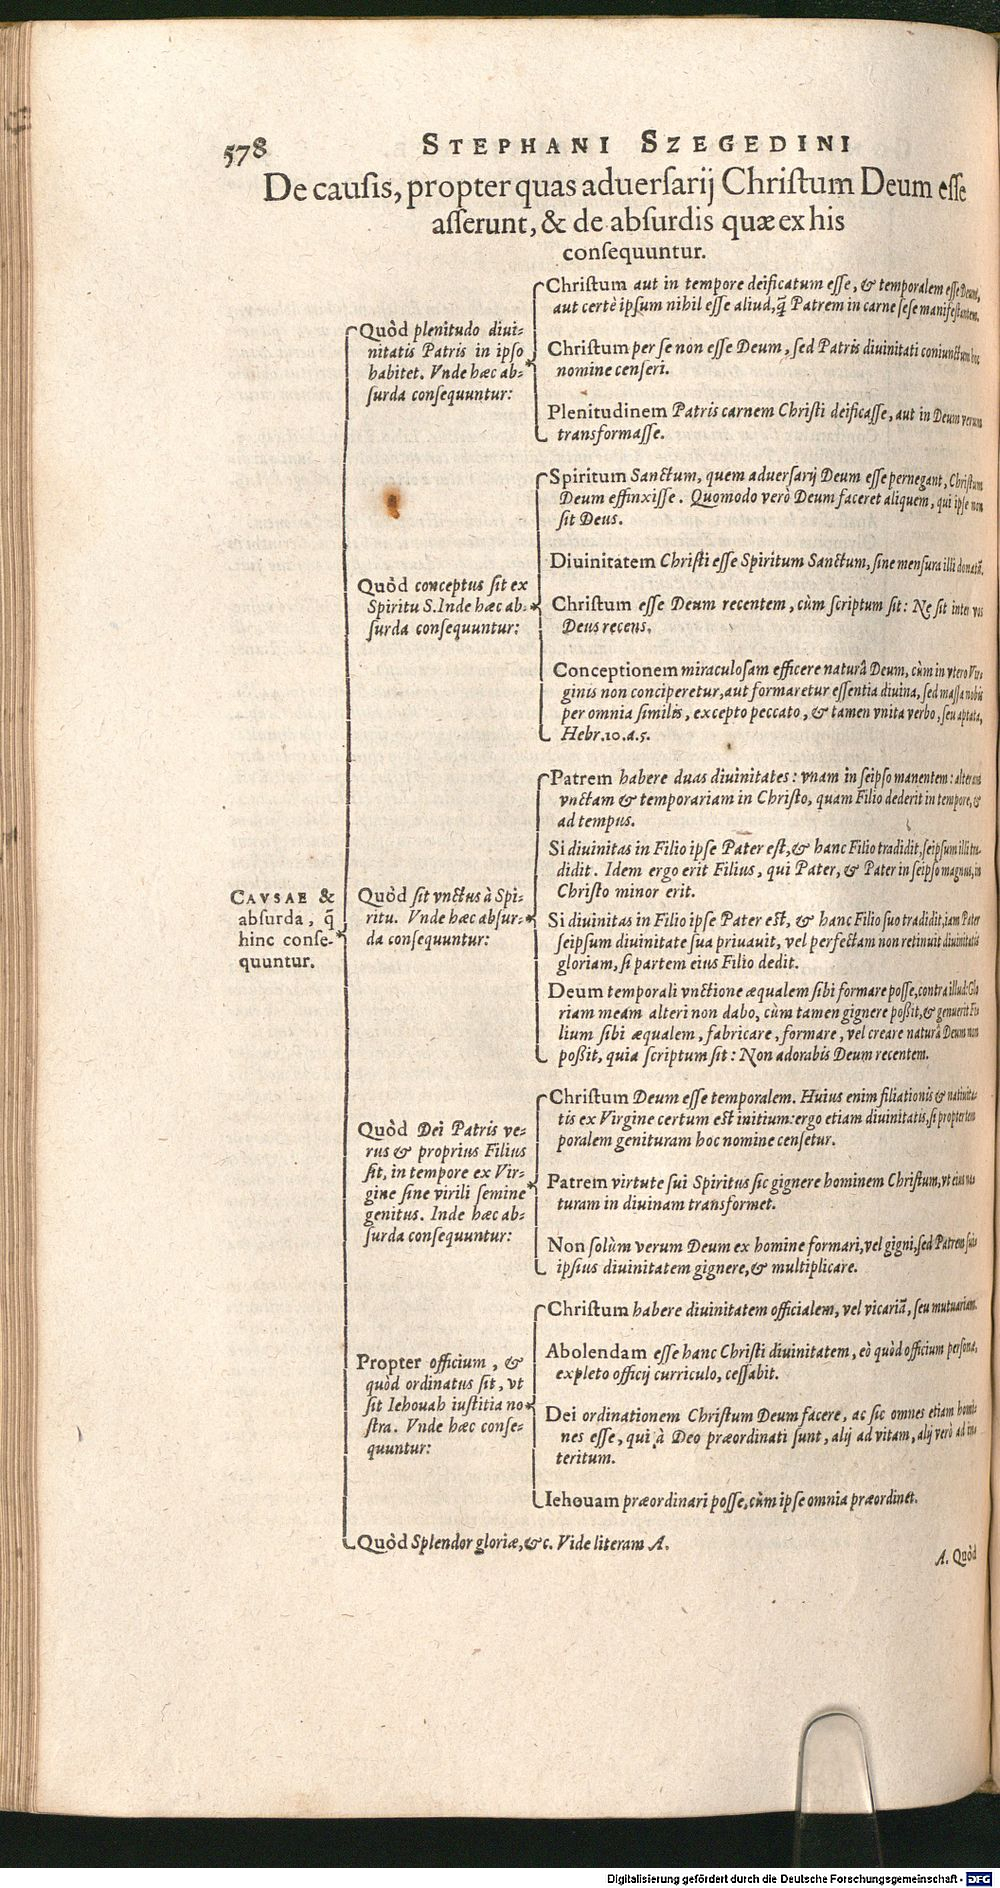 578
STEPHANI SZEGEDINI
De causis, propter quas aduersarij Christum Deum esse
asserunt, & de absurdis quæ ex his
consequuntur.
CAVSAE &
absurda, q̃
hinc conse-
quuntur.
Quòd plenitudo diui-
nitatis Patris in ipso
habitet. Vnde hæc ab-
surda consequuntur:
Christum aut in tempore deificatum esse, & temporalem esse Deum,
aut certè ipsum nihil esse aliud, q̃ Patrem in carne sese manifestantem.
Christum per se non esse Deum, sed Patris diuinitati coniunctum hoc
nomine censeri.
Plenitudinem Patris carnem Christi deificasse, aut in Deum verum
transformasse.
Quòd conceptus sit ex
Spiritu S. Inde hæc ab-
surda consequuntur:
Spiritum Sanctum, quem aduersarij Deum esse pernegant, Christum
Deum effinxisse. Quomodo verò Deum faceret aliquem, qui ipse non
sit Deus.
Diuinitatem Christi esse Spiritum Sanctum, sine mensura illi donatũ.
Christum esse Deum recentem, cùm scriptum sit: Ne sit inter vos
Deus recens.
Conceptionem miraculosam efficere naturâ Deum, cùm in vtero Vir-
ginis non conciperetur, aut formaretur essentia diuina, sed massa nobis
per omnia similis, excepto peccato, & tamen vnita verbo, seu aptata,
Hebr. 10. a. 5.
Quòd sit vnctus à Spi-
ritu. Vnde hæc absur-
da consequuntur:
Patrem habere duas diuinitates: vnam in seipso manentem: alteram
vnctam & temporariam in Christo, quam Filio dederit in tempore, &
ad tempus.
Si diuinitas in Filio ipse Pater est, & hanc Filio tradidit, seipsum illi tra-
didit. Idem ergo erit Filius, qui Pater, & Pater in seipso magnus, in
Christo minor erit.
Si diuinitas in Filio ipse Pater est, & hanc Filio suo tradidit, iam Pater
seipsum diuinitate sua priuauit, vel perfectam non retinuit diuinitatis
gloriam, si partem eius Filio dedit.
Deum temporali vnctione æqualem sibi formare posse, contra illud: Glo
riam meam alteri non dabo, cùm tamen gignere poßit, & genuerit Fi-
lium sibi æqualem, fabricare, formare, vel creare naturâ Deum non
poßit, quia scriptum sit: Non adorabis Deum recentem.
Quòd Dei Patris ve-
rus & proprius Filius
sit, in tempore ex Vir-
gine sine virili semine
genitus. Inde hæc ab-
surda consequuntur:
Christum Deum esse temporalem. Huius enim filiationis & natiuita-
tis ex Virgine certum est initium: ergo etiam diuinitatis, si propter tem
poralem genituram hoc nomine censetur.
Patrem virtute sui Spiritus sic gignere hominem Christum, vt eius na-
turam in diuinam transformet.
Non solùm verum Deum ex homine formari, vel gigni, sed Patrem suis
ipsius diuinitatem gignere, & multiplicare.
Propter officium, &
quòd ordinatus sit, vt
sit Iehouah iustitia no-
stra. Vnde hæc conse-
quuntur:
Christum habere diuinitatem officialem, vel vicariã, seu mutuariam.
Abolendam esse hanc Christi diuinitatem, eò quòd officium personæ,
expleto officij curriculo, cessabit.
Dei ordinationem Christum Deum facere, ac sic omnes etiam homi-
nes esse, qui à Deo præordinati sunt, alij ad vitam, alij verò ad in-
teritum.
Iehouam præordinari posse, cùm ipse omnia præordinet.
Quòd Splendor gloriæ, &c. Vide literam A.
A. Quòd
Digitalisierung gefördert durch die Deutsche Forschungsgemeinschaft - DFG